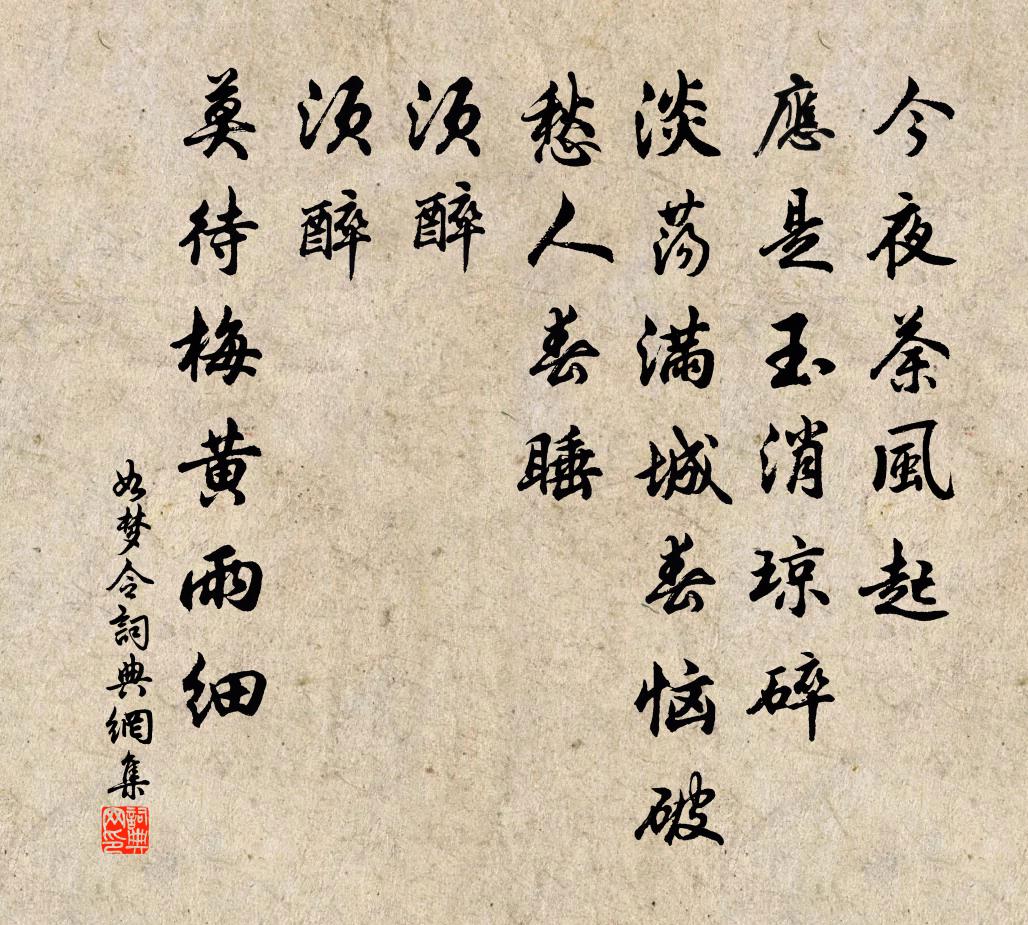 今夜荼風起
應是玉消琼碎
淡荡滿城春恼破
愁人春睡
须醉
须醉
莫待梅黄雨细
如梦令詞典網集
詞典网印